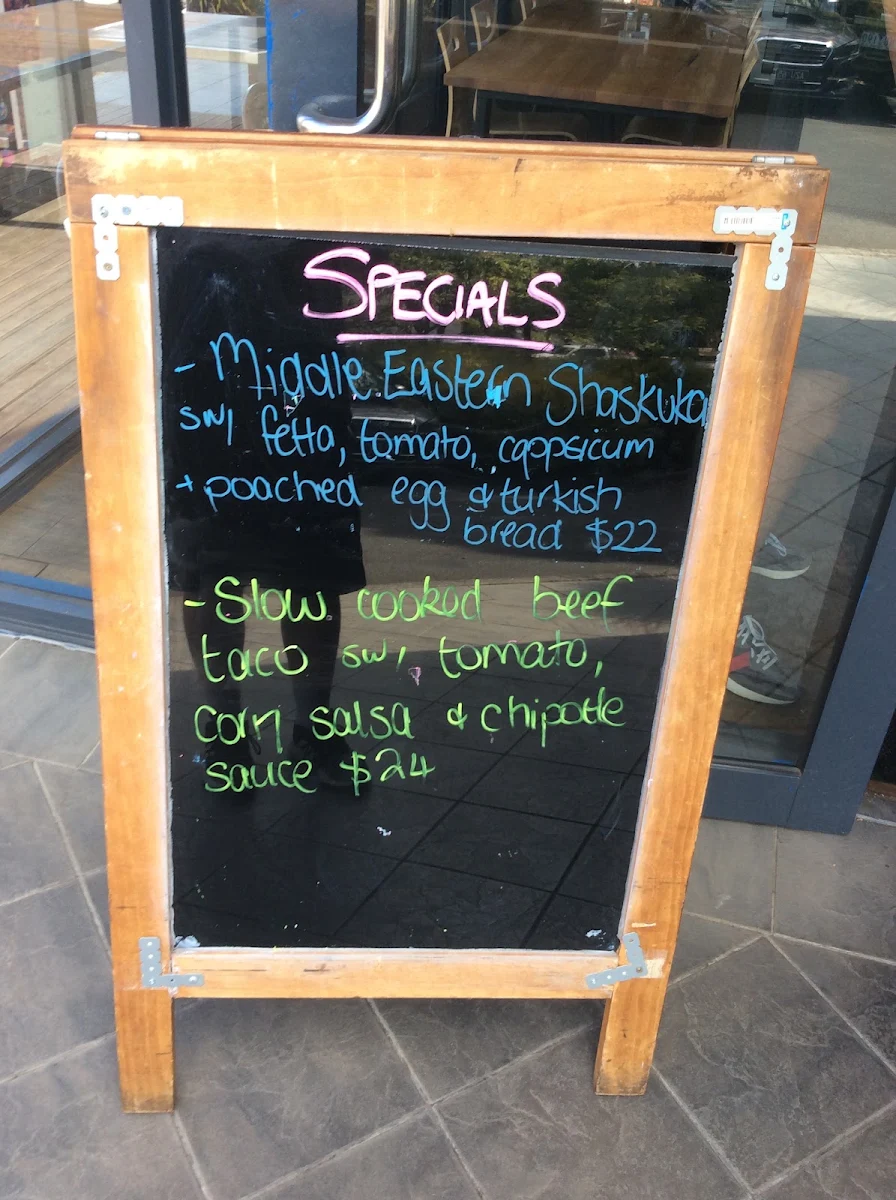 SPECIALS
- Middle Eastern Shaskuka
sw/ fetta, tomato, cappsicum
+ poached egg & turkish
bread $22
- Slow cooked beef
taco sw/ tomato,
corn salsa & chipotle
sauce $24